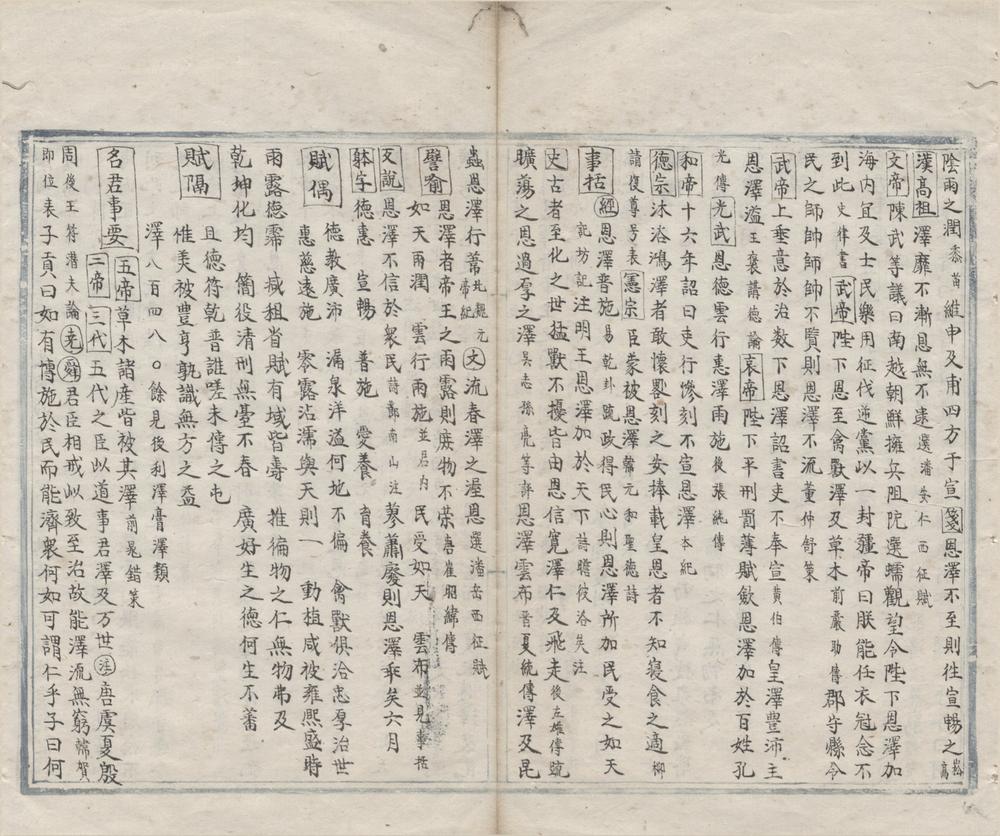 陰雨之潤黍苗維申及甫四方于宣箋恩澤不至則往宣暢之崧高
漢高祖澤靡不漸恩無不逮選潘安仁西征賦
文帝陳武等議曰南越朝鮮擁兵阻阨選蠕觀望今陛下恩澤加
海內宜及士民樂用征伐逆黨以一封疆帝曰朕能任衣冠念不
到此史律書武帝陛下恩至禽獸澤及草木前嚴助傳郡守縣令
民之師帥師帥不賢則恩澤不流董仲舒策
武帝上垂意於治数下恩澤詔書吏不奉宣黃伯傳皇澤豊沛主
恩澤溢王襃講德論哀帝陛下平刑罰薄賦斂恩澤加於百姓孔
光傳光武恩德雲行惠澤雨施後張純傳
和帝十六年詔曰吏行慘刻不宣恩澤本紀
德宗沐浴鴻澤者敢懷晷刻之安捧載皇恩者不知寢食之適柳
請復尊号表憲宗臣蒙被恩澤韓元和聖德詩
事括經恩澤普施易乾卦䟽政得民心則恩澤所加民受之如天
記坊記注明王恩澤加於天下詩瞻彼洛矣注
史古者至化之世猛獸不擾皆由恩信寬澤仁及飛走後左雄傳䟽
曠蕩之恩過厚之澤吳志孫亮等評恩澤雲布晋夏統傳澤及昆
蟲恩澤行葦北魏元帝紀文流春澤之渥恩選潘岳西征賦
譬喻恩澤者帝王之雨露則庶物不荣唐崔昭緯傳
如天雨潤 雲行雨施並君內 民受如天 雲布並見事括
反說恩澤不信於衆民詩鄭南山注蓼蕭廢則恩澤乖矣六月
躰字德惠 宣暢 普施 愛養 育養
賦偶 德教廣沛 漏泉洋溢何地不偏 禽獸俱洽忠厚治世
惠慈遠施 零露沾濡與天則一 動植咸被雍熙盛時
雨露德霈 減租省賦有域皆壽 推徧物之仁無物弗及
乾坤化均 簡役清刑無毫不春 廣好生之德何生不蕃
賦隔 且德符乾普誰嗟未傳之屯
惟美被豊亨孰識無方之益
澤八百四八〇餘見後利澤膏澤類
名君事要 五帝草木諸產皆被其澤前晁錯策
二帝三代五代之臣以道事君澤及万世注唐虞夏殷
周後王符潜夫論堯舜君臣相戒以致至治故能澤流無窮韓賀
即位表子貢曰如有博施於民而能濟衆何如可謂仁乎子曰何